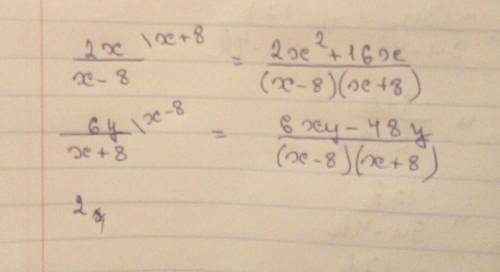 2x/(x-8) \x+8 = (2x²+16x)/((x-8)(x+8))
6y/(x+8) \x-8 = (6xy-48y)/((x-8)(x+8))
2